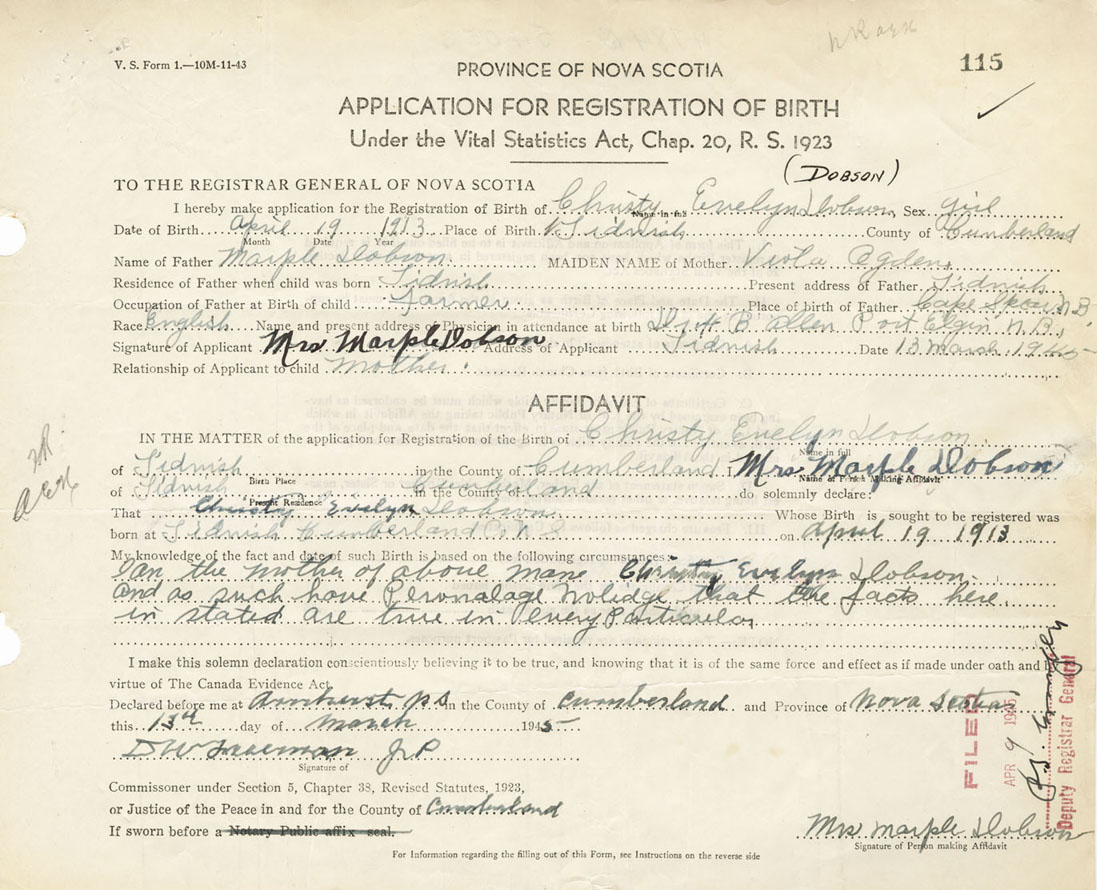 V. S. Form 1.—10M-11-43
115
PROVINCE OF NOVA SCOTIA
APPLICATION FOR REGISTRATION OF BIRTH
Under the Vital Statistics Act, Chap. 20, R. S. 1923
(DOBSON)
TO THE REGISTRAR GENERAL OF NOVA SCOTIA
I hereby make application for the Registration of Birth of Christy Evelyn Dobson Sex girl
Name in full
Date of Birth April 19 1913 Place of Birth Tidnish County of Cumberland
Month Date Year
Name of Father Marple Dobson MAIDEN NAME of Mother Viola Ogden
Residence of Father when child was born Tidnish Present address of Father Tidnish
Occupation of Father at Birth of child farmer Place of birth of Father Cape Spear N B
Race English Name and present address of Physician in attendance at birth B Allen Port Elgin N.B.
Signature of Applicant Mrs Marple Dobson Address of Applicant Tidnish Date 13 March 1945
Relationship of Applicant to child mother
AFFIDAVIT
IN THE MATTER of the application for Registration of the Birth of Christy Evelyn Dobson
Name in full
of Tidnish in the County of Cumberland I, Mrs Marple Dobson
Birth Place Name of Person Making Affidavit
of Tidnish in the County of Cumberland do solemnly declare:
Present Residence
That Christy Evelyn Dobson Whose Birth is sought to be registered was
born at Tidnish Cumberland Co. N S on April 19 1913
My knowledge of the fact and date of such Birth is based on the following circumstances:
I am the mother of above mane Christy Evelyn Dobson
and as such have Personalage Nolidge that the facts here
in stated are true in every Particular
I make this solemn declaration conscientiously believing it to be true, and knowing that it is of the same force and effect as if made under oath and by
virtue of The Canada Evidence Act.
Declared before me at Amherst N S in the County of Cumberland and Province of Nova Scotia
this 13th day of March 1945
J P
Signature of
Commissoner under Section 5, Chapter 38, Revised Statutes, 1923,
or Justice of the Peace in and for the County of Cumberland
If sworn before a Notary Public affix seal.
FILED
APR 9 1945
Deputy Registrar General
Mrs Marple Dobson
Signature of Person making Affidavit
For Information regarding the filling out of this Form, see Instructions on the reverse side